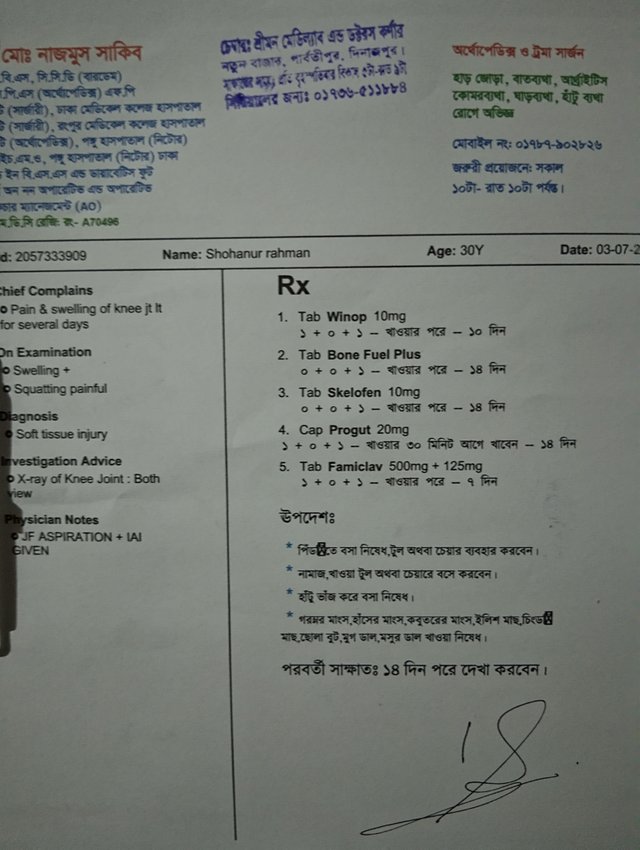 মোঃ নাজমুস সাকিব
বি.এস, সি.সি.ডি (বারডেম)
পি.এস (অর্থোপেডিক্স) এফ.পি
(সার্জারী), ঢাকা মেডিকেল কলেজ হাসপাতাল
(সার্জারী), রংপুর মেডিকেল কলেজ হাসপাতাল
(অর্থোপেডিক্স), পঙ্গু হাসপাতাল (নিটোর)
এইচ.এম.ও, পঙ্গু হাসপাতাল (নিটোর) ঢাকা
ইন বি.এস.এস এন্ড ডায়াবেটিস ফুট
অন নন অপারেটিভ এন্ড অপারেটিভ
ম্যানেজমেন্ট (AO)
এম.ডি.সি রেজি: নং- A70496
চেম্বার: শ্রীমন মেডিক্যাল এন্ড ডক্টরস কর্নার
নতুন বাজার, পার্বতীপুর, দিনাজপুর।
সিরিয়ালের জন্য: ০১৭৩৮-৫১১৮৮৪
অর্থোপেডিক্স ও ট্রমা সার্জন
হাড় জোড়া, বাতব্যথা, আর্থ্রাইটিস
কোমরব্যথা, ঘাড়ব্যথা, হাঁটু ব্যথা
রোগে অভিজ্ঞ
মোবাইল নং: ০১৯৮৭-৯০২৮২৬
জরুরী প্রয়োজনে: সকাল
১০টা- রাত ১০টা পর্যন্ত।
d: 2057333909
Name: Shohanur rahman
Age: 30Y
Date: 03-07-2
Chief Complains
Pain & swelling of knee jt lt
for several days
On Examination
Swelling +
Squatting painful
Diagnosis
Soft tissue injury
Investigation Advice
X-ray of Knee Joint : Both
view
Physician Notes
JF ASPIRATION + IAI
GIVEN
Rx
1. Tab Winop 10mg
১ + ০ + ১ – খাওয়ার পরে – ১০ দিন
2. Tab Bone Fuel Plus
০ + ০ + ১ – খাওয়ার পরে – ১৪ দিন
3. Tab Skelofen 10mg
০ + ০ + ১ – খাওয়ার পরে – ১৪ দিন
4. Cap Progut 20mg
১ + ০ + ১ – খাওয়ার ৩০ মিনিট আগে খাবেন – ১৪ দিন
5. Tab Famiclav 500mg + 125mg
১ + ০ + ১ – খাওয়ার পরে – ৭ দিন
উপদেশঃ
* পিঁড়িতে বসা নিষেধ,টুল অথবা চেয়ার ব্যবহার করবেন।
* নামাজ,খাওয়া টুল অথবা চেয়ারে বসে করবেন।
* হাঁটু ভাঁজ করে বসা নিষেধ।
* গরুর মাংস,হাঁসের মাংস,কবুতরের মাংস,ইলিশ মাছ,চিংড়ি
মাছ,ছোলা বুট,মুগ ডাল,মসুর ডাল খাওয়া নিষেধ।
পরবর্তী সাক্ষাতঃ ১৪ দিন পরে দেখা করবেন।